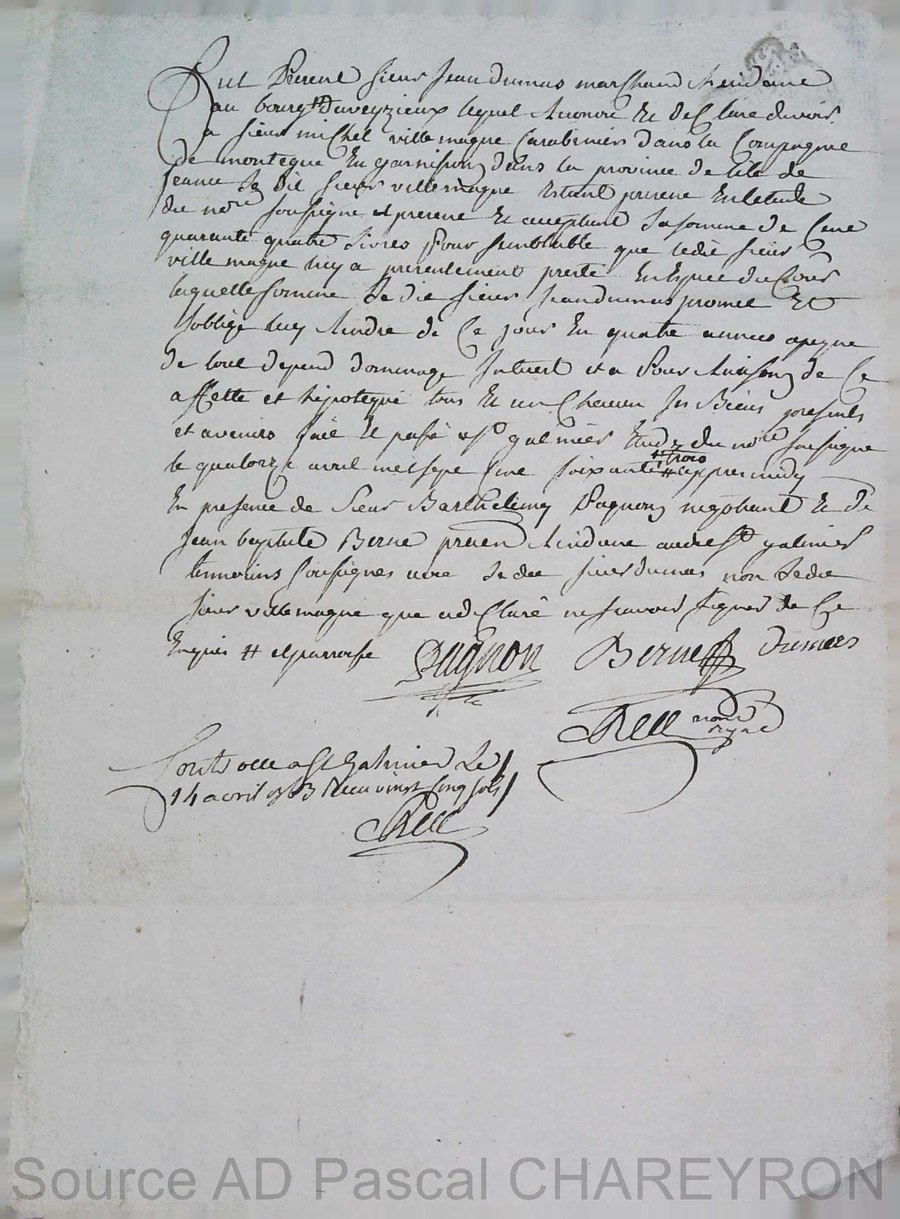 fut Present sieur Jean dumas marchand Residant
au bourg de veyzieux lequel Reconoit Et de Claré devoir
a sieur michel ville magne Carabiniers dans la Compagnie
de montegue En garnison dans la province de lile de
france le dit sieur villemagne Estant present En letude
du nore soussigne Et present Et acceptant la somme de Cent
quarante quatre Livres pour semblable que ledit sieur
ville magne luy a presentement presté En Espece du Cours
laquelle somme le dit sieur Jean dumas promet Et
soblige luy Rendre de Ce jour En quatre années a peyne
de tout depend dommage Interest et a Pour Raison de Ce
affette et hipoteque tous Et un Chacun ses Biens presents
et avenirs fait Et passé a st galmier Etude du nore soussigne
le quatorze avril mil sept Cent soixante # appres midy
# trois
En presence de sieur Barthelemy Pagnon negotiant Et de
Jean baptiste Berne Residant audit st galmier
temmoins soussignes avec le dit sieur dumas non ledit
sieur villemagne que a de Claré ne scavoir signer de Ce
Enquis #
Pagnon Berne Dumas
nore
Royal
Controlle a st Galmier Le
14 avril 1763 Recu vingt cinq sols